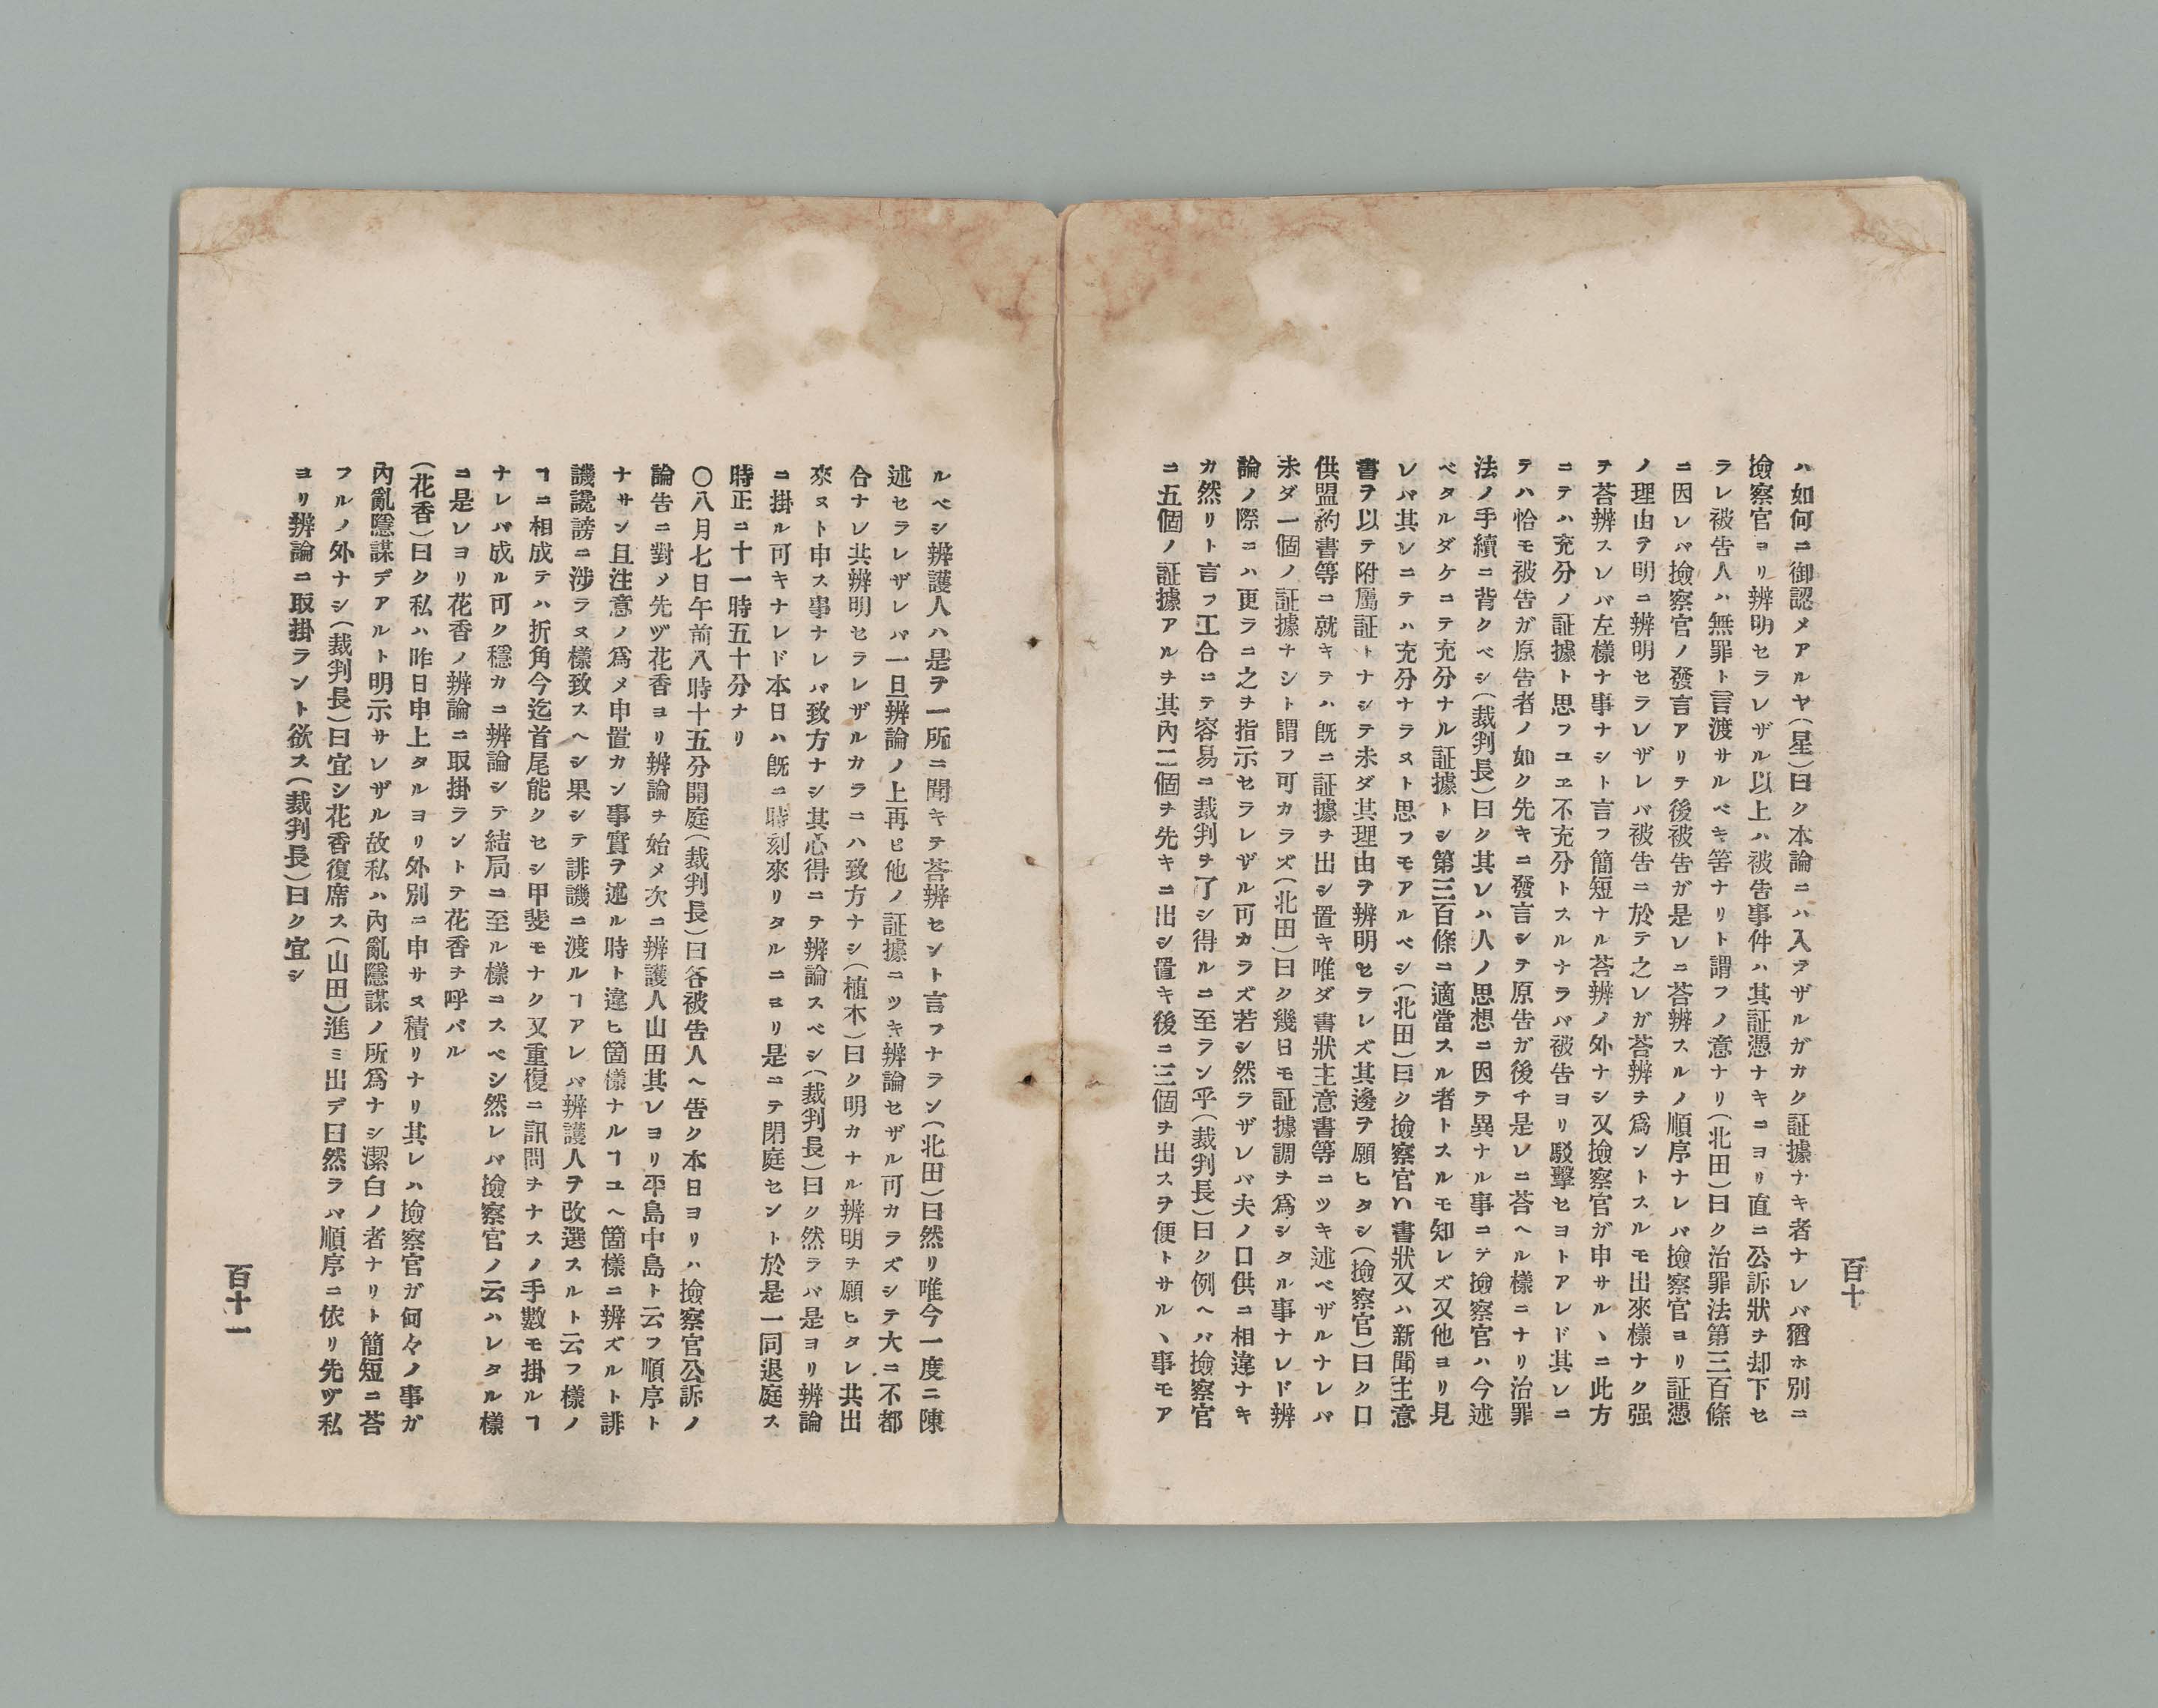 百十
ハ如何ニ御認メアルヤ(星)曰ク本論ニハ入ラザルガカク証據ナキ者ナレバ猶ホ別ニ
撿察官ヨリ辨明セラレザル以上ハ被告事件ハ其証憑ナキニヨリ直ニ公訴狀ヲ却下セ
ラレ被告人ハ無罪ト言渡サルベキ筈ナリト謂フノ意ナリ(北田)曰ク治罪法第三百條
ニ因レバ撿察官ノ發言アリテ後被告ガ是レニ荅辨スルノ順序ナレバ撿察官ヨリ証憑
ノ理由ヲ明ニ辨明セラレザレバ被告ニ於テ之レガ荅辨ヲ爲ントスルモ出來樣ナク强
ヲ荅辨スレバ左樣ナ事ナシト言フ簡短ナル荅辨ノ外ナシ又撿察官ガ申サルヽニ此方
ニテハ充分ノ証據ト思フユヱ不充分トスルナラバ被告ヨリ駁擊セヨトアレド其レニ
テハ恰モ被告ガ原告者ノ如ク先キニ發言シテ原告ガ後チ是レニ荅ヘル樣ニナリ治罪
法ノ手續ニ背クベシ(裁判長)曰ク其レハ人ノ思想ニ因テ異ナル事ニテ撿察官ハ今述
ベタルダケニテ充分ナル証據トシ第三百條ニ適當スル者トスルモ知レズ又他ヨリ見
レバ其レニテハ充分ナラヌト思フモアルベシ(北田)曰ク撿察官ハ書狀又ハ新聞主意
書ヲ以テ附屬証トナシテ未ダ其理由ヲ辨明セラレズ其邊ヲ願ヒタシ(撿察官)曰ク口
供盟約書等ニ就キテハ旣ニ証據ヲ出シ置キ唯ダ書狀主意書等ニツキ述ベザルナレバ
未ダ一個ノ証據ナシト謂フ可カラズ(北田)曰ク幾日モ証據調ヲ爲シタル事ナレド辨
論ノ際ニハ更ラニ之ヲ指示セラレザル可カラズ若シ然ラザレバ夫ノ口供ニ相違ナキ
カ然リト言フ工合ニテ容易ニ裁判ヲ了シ得ルニ至ラン乎(裁判長)曰ク例ヘバ撿察官
ニ五個ノ証據アルヲ其內二個ヲ先キニ出シ置キ後ニ三個ヲ出スヲ便トサルヽ事モア
ルベシ辨護人ハ是ヲ一所ニ聞キテ荅辨セント言フナラン(北田)曰然リ唯今一度ニ陳
述セラレザレバ一旦辨論ノ上再ビ他ノ証據ニツキ辨論セザル可カラズシテ大ニ不都
合ナレ共辨明セラレザルカラニハ致方ナシ(植木)曰ク明カナル辨明ヲ願ヒタレ共出
來ヌト申ス事ナレバ致方ナシ其心得ニテ辨論スベシ(裁判長)曰ク然ラバ是ヨリ辨論
ニ掛ル可キナレド本日ハ旣ニ時刻來リタルニヨリ是ニテ閉庭セント於是一同退庭ス
時正ニ十一時五十分ナリ
〇八月七日午前八時十五分開庭(裁判長)曰各被告人ヘ告ク本日ヨリハ撿察官公訴ノ
論告ニ對ノ先ヅ花香ヨリ辨論ヲ始メ次ニ辨護人山田其レヨリ平島中島ト云フ順序ト
ナサン且注意ノ爲メ申置カン事實ヲ述ル時ト違ヒ箇樣ナルヿユヘ箇樣ニ辨ズルト誹
譏讒謗ニ涉ラヌ樣致スヘシ果シテ誹譏ニ渡ルヿアレバ辨護人ヲ改選スルト云フ樣ノ
ヿニ相成テハ折角今迄首尾能クセシ甲斐モナク又重復ニ訊問ヲナスノ手數モ掛ルヿ
ナレバ成ル可ク穩カニ辨論シテ結局ニ至ル樣ニスベシ然レバ撿察官ノ云ハレタル樣
ニ是レヨリ花香ノ辨論ニ取掛ラントテ花香ヲ呼バル
(花香)曰ク私ハ昨日申上タルヨリ外別ニ申サヌ積リナリ其レハ撿察官ガ何々ノ事ガ
內亂隱謀デアルト明示サレザル故私ハ內亂隱謀ノ所爲ナシ潔白ノ者ナリト簡短ニ荅
フルノ外ナシ(裁判長)曰宜シ花香復席ス(山田)進ミ出デ曰然ラバ順序ニ依リ先ヅ私
ヨリ辨論ニ取掛ラント欲ス(裁判長)曰ク宜シ
百十一